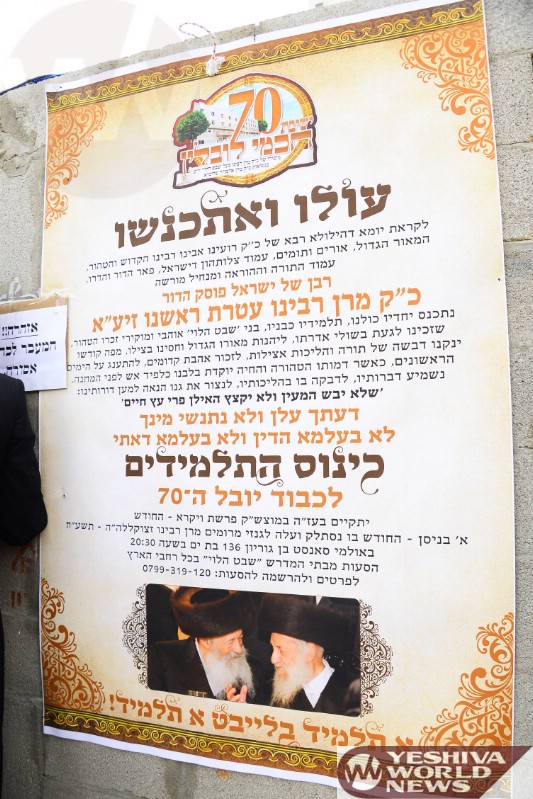 70
שנות
חכמי לובלין
עולו ואתכנשו
לקראת יומא דהילולא רבא של כ״ק רועינו אבינו רבינו הקדוש והטהור,
המאור הגדול, אורים ותומים, עמוד צלותהון דישראל, פאר הדור והדרו,
עמוד התורה וההוראה ומנחיל מורשה
רבן של ישראל פוסק הדור
כ״ק מרן רבינו עטרת ראשנו זיע״א
נתכנס יחדיו כולנו, תלמידיו כבניו, בני 'שבט הלוי' אוהבי ומוקירי זכרו הטהור,
שזכינו לגעת בשולי אדרתו, ליהנות מאורו הגדול וחסינו בצילו, מפה קודשו
ינקנו דבשה של תורה והליכות אצילות, לזכור אהבת קדומים, להתענג על הימים
הראשונים, כאשר דמותו הטהורה והחיה יוקדת בלבנו כלפיד אש לפני המחנה,
נשמיע דברותיו, לדבקה בו בהליכותיו, לנצור את גנו הנאה למען דורותינו:
'שלא יבש המעין ולא יקצץ האילן פרי עץ חיים'
דעתך עלן ולא נתנשי מינך
לא בעלמא הדין ולא בעלמא דאתי
כינוס התלמידים
לכבוד יובל ה־70
יתקיים בעז״ה במוצש״ק פרשת ויקרא - החודש
א׳ בניסן - החודש בו נסתלק ועלה לגנזי מרומים מרן רבינו זצוקללה״ה - תשע״ח
באולמי סאנסט בן גוריון 136 בת ים בשעה 20:30
הסעות מבתי המדרש "שבט הלוי" בכל רחבי הארץ
לפרטים ולהרשמה להסעות: 0799-319-120
א תלמיד בלייבט א תלמיד!
אזהרה!!
המעבר
אסורה
YESHIVA
WORLD
NEWS